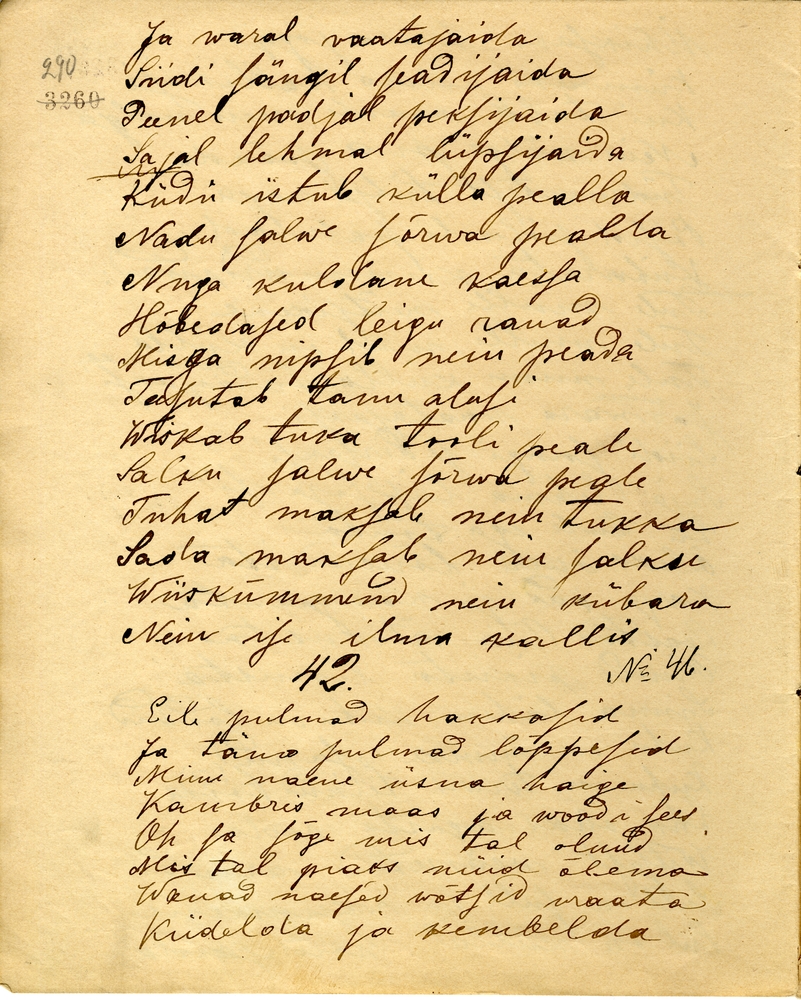 Ja waral vaatajaida
290
Siidi sängil seadijaida
3260
Peenel padjal peksijaida
Sajal lehmal lüpsijaida
Küdü istub külla pealla
Nadu salwe sõrwa pealta
Nuga kuldane kaessa
Hõbedased leigu rauad
Misga nipsib nein peada
Tasutab tanu alusi
Wiskab tuka tooli peale
Salku salwe sõrwa peale
Tuhat maksab nein tukka
Sada maksab nein salku
Wiiskümmend nein kübara
Nein ise ilma kallis
42. № 46.
Eile pulmad hakkasid
Ja täna pulmad lõppesid
Minu naene üsna haige
Kambris maas ja woodi sees
Oh sa sõge mis tal olnud
Mis tal piaks nüid õlema
Wanad naesed wõtsid waata
Kiidelda ja kembelda